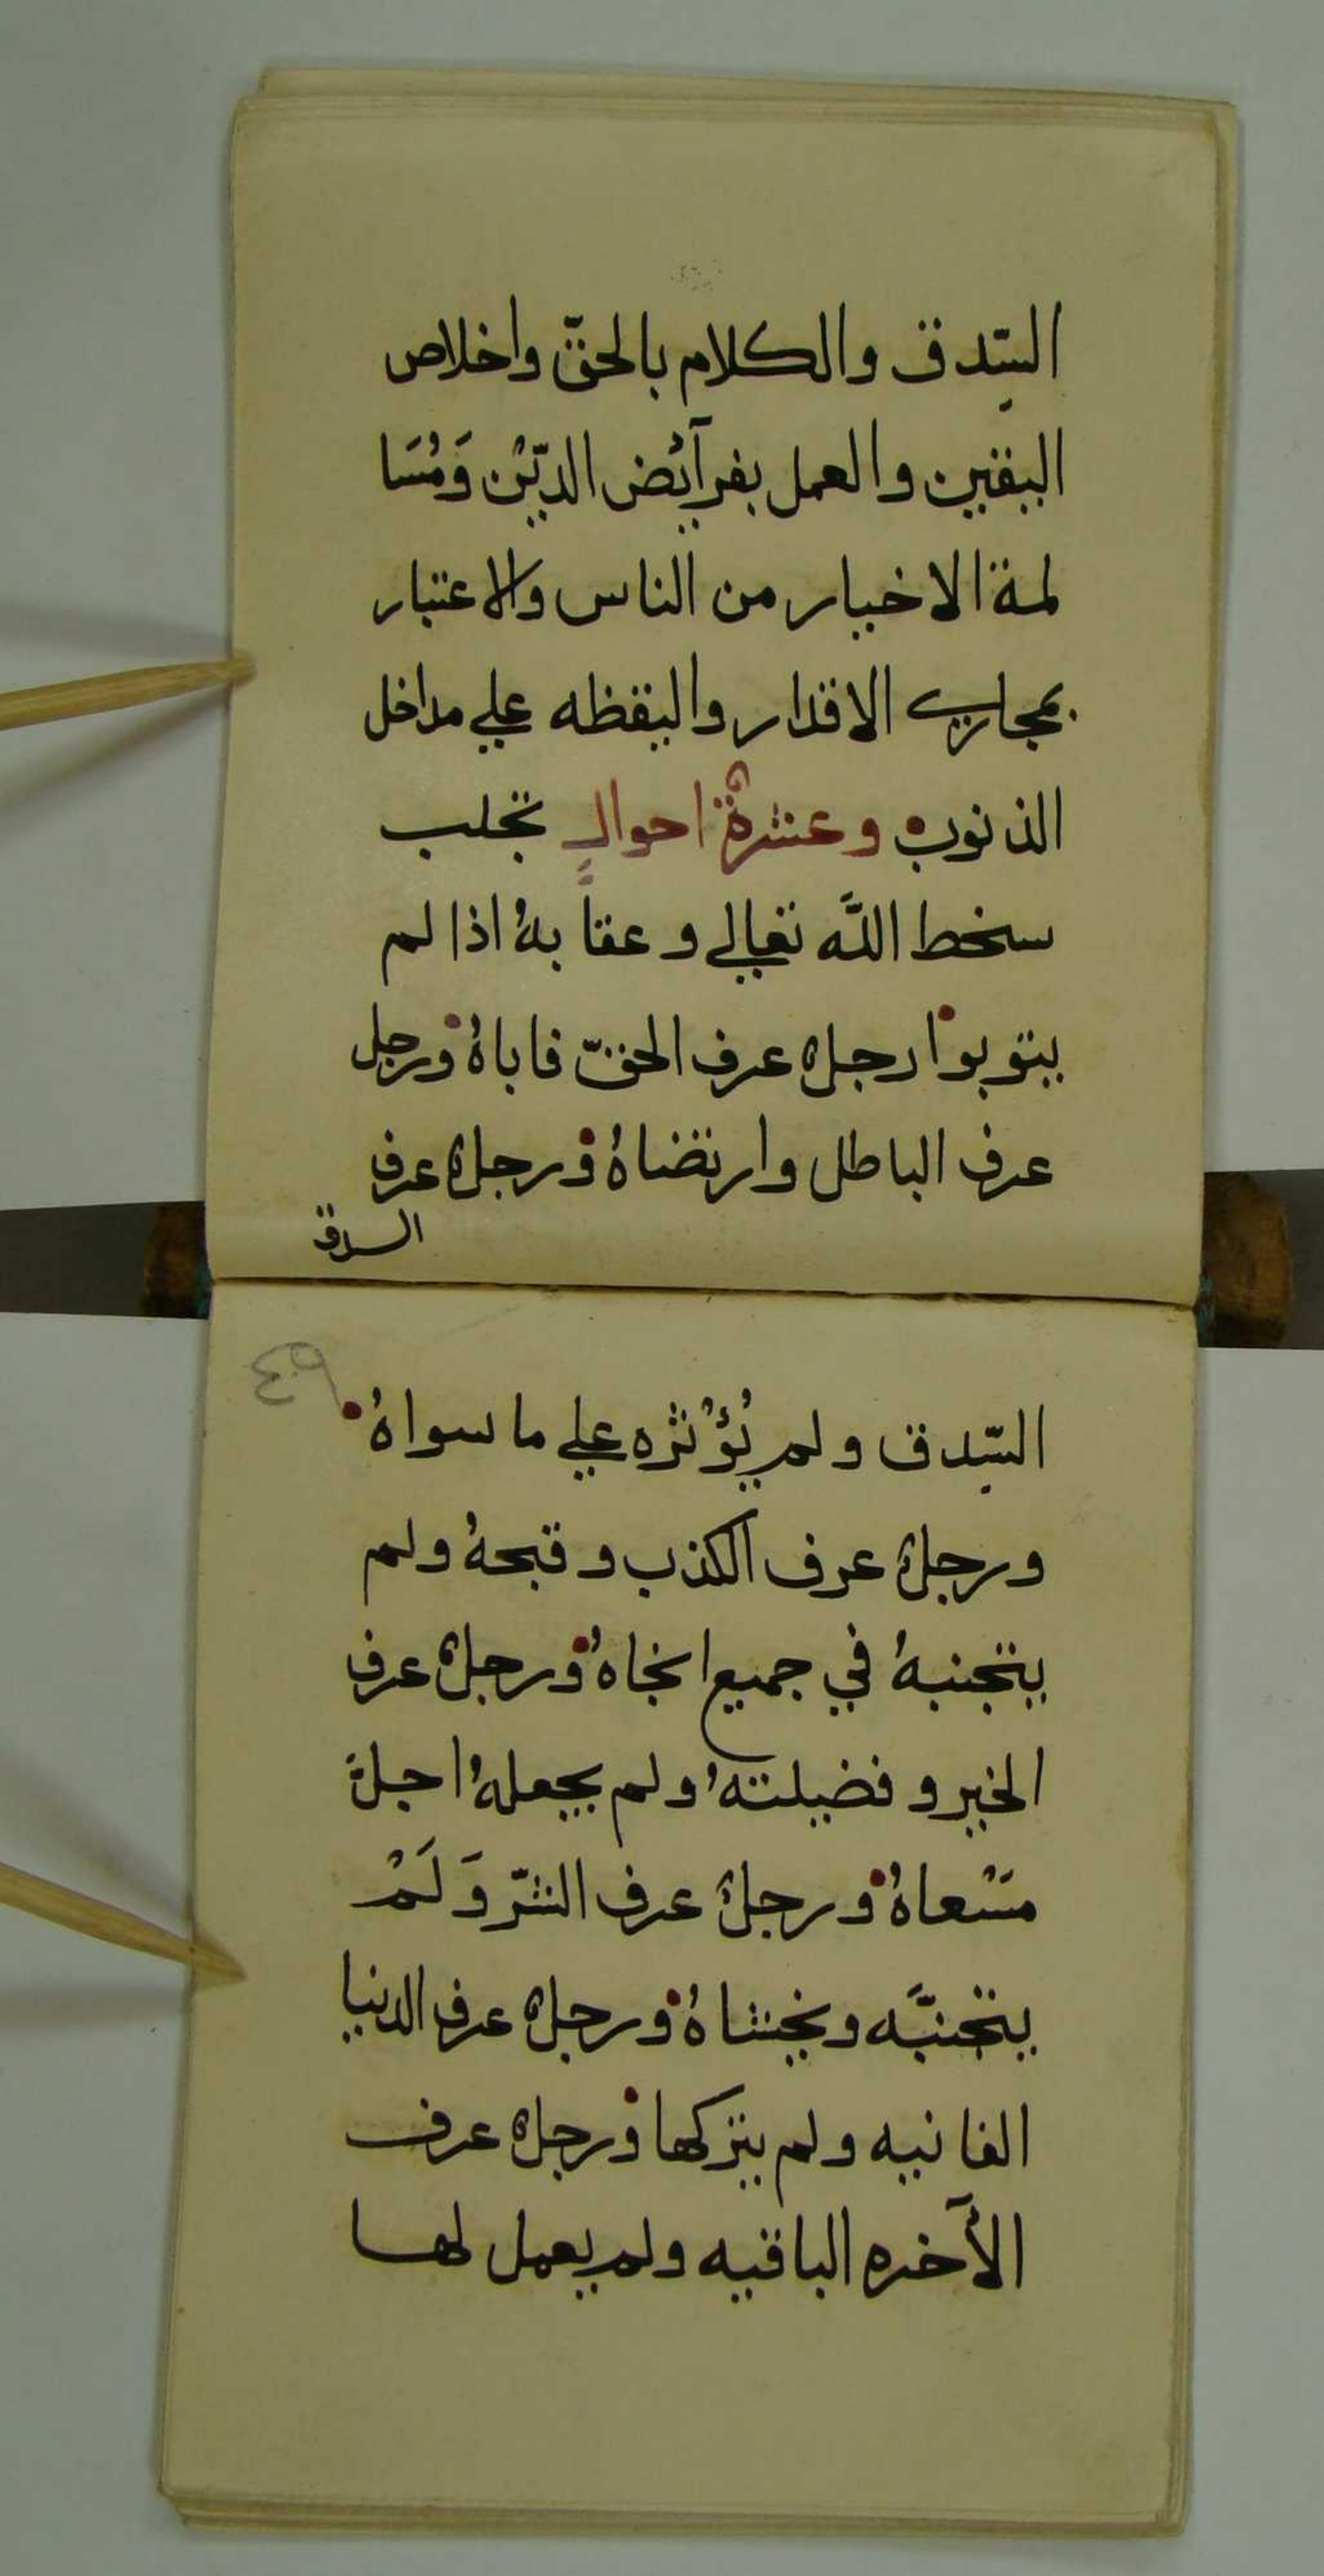 السّدق والكلام بالحقّ واخلاص
اليقين والعمل بفرآئض الدّيْن وَمُسَا
لمة الاخيار من الناس والاعتبار
بمجاري الاقدار واليقظه علي مداخل
الذنوب وعشرةٌ احوالٍ تجلب
سخط اللَّه تعالي وعقا بهُ اذا لم
يتوبوا رجلٌ عرف الحقّ فاباهُ ورجل
عرف الباطل وارتضاهُ ورجلٌ عرف
السدق
السّدق ولم يُؤْثره علي ما سواهُ
ورجلٌ عرف الكذب وقبحهُ ولم
يتجنبهُ في جميع انحاهُ ورجلٌ عرف
الخير وفضيلتهُ ولم يجعلهُ اجلّ
مَسْعاهُ ورجلٌ عرف الشّر وَلَمْ
يتجنبَّه ويخشاهُ ورجلٌ عرف الدنيا
الفانيه ولم يتركها ورجلٌ عرف
الآخره الباقيه ولم يعمل لها